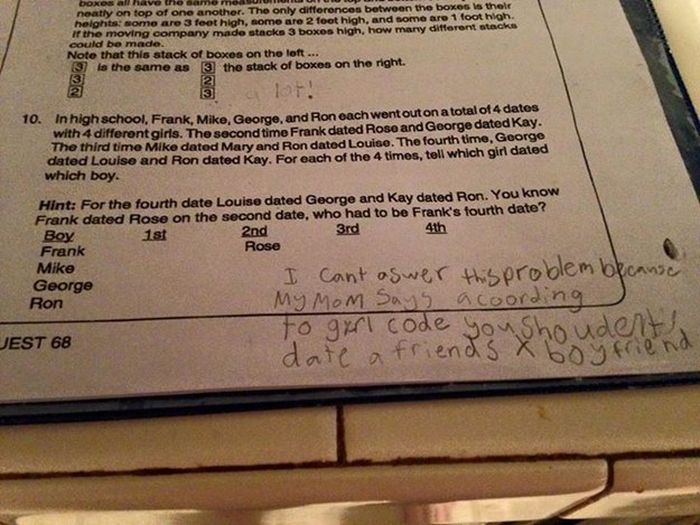 boxes all have the same
neatly on top of one another. The only differences between the boxes is their
heights: some are 3 feet high, some are 2 feet high, and some are 1 foot high.
If the moving company made stacks 3 boxes high, how many different stacks
could be made.
Note that this stack of boxes on the left ...
3 is the same as 3 the stack of boxes on the right.
3 2
2 3 a lot!
10. In high school, Frank, Mike, George, and Ron each went out on a total of 4 dates
with 4 different girls. The second time Frank dated Rose and George dated Kay.
The third time Mike dated Mary and Ron dated Louise. The fourth time, George
dated Louise and Ron dated Kay. For each of the 4 times, tell which girl dated
which boy.
Hint: For the fourth date Louise dated George and Kay dated Ron. You know
Frank dated Rose on the second date, who had to be Frank's fourth date?
Boy 1st 2nd 3rd 4th
Frank Rose
Mike
George
Ron
I cant aswer this problem because
My Mom Says acoording
to girl code you shoudent
date a friends x boyfriend
UEST 68